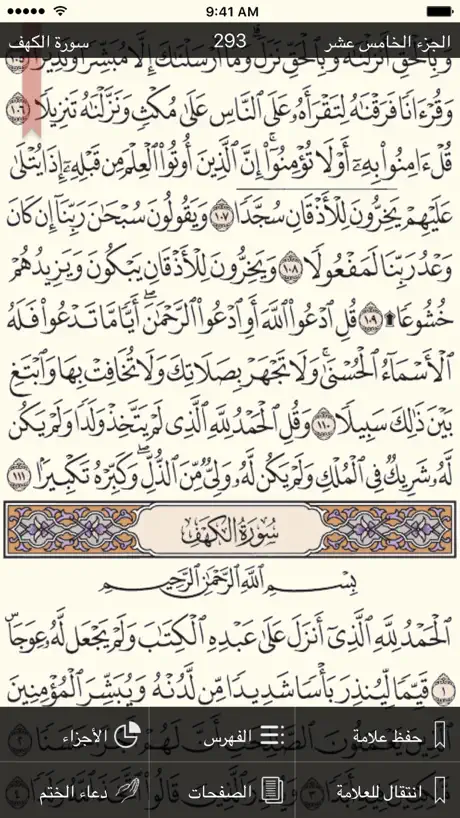 9:41 AM
الجزء الخامس عشر 293 سورة الكهف
وَبِالْحَقِّ أَنزَلْنَاهُ وَبِالْحَقِّ نَزَلَ ۗ وَمَا أَرْسَلْنَاكَ إِلَّا مُبَشِّرًا وَنَذِيرًا ١٠٥
وَقُرْءَانًا فَرَقْنَاهُ لِتَقْرَأَهُ عَلَى النَّاسِ عَلَىٰ مُكْثٍ وَنَزَّلْنَاهُ تَنزِيلًا ١٠٦
قُلْ ءَامِنُوا بِهِ أَوْ لَا تُؤْمِنُوا ۚ إِنَّ الَّذِينَ أُوتُوا الْعِلْمَ مِن قَبْلِهِ إِذَا يُتْلَىٰ
عَلَيْهِمْ يَخِرُّونَ لِلْأَذْقَانِ سُجَّدًا ١٠٧ وَيَقُولُونَ سُبْحَانَ رَبِّنَا إِن كَانَ
وَعْدُ رَبِّنَا لَمَفْعُولًا ١٠٨ وَيَخِرُّونَ لِلْأَذْقَانِ يَبْكُونَ وَيَزِيدُهُمْ
خُشُوعًا ۩ ١٠٩ قُلِ ادْعُوا اللَّهَ أَوِ ادْعُوا الرَّحْمَٰنَ ۖ أَيًّا مَّا تَدْعُوا فَلَهُ
الْأَسْمَاءُ الْحُسْنَىٰ ۚ وَلَا تَجْهَرْ بِصَلَاتِكَ وَلَا تُخَافِتْ بِهَا وَابْتَغِ
بَيْنَ ذَٰلِكَ سَبِيلًا ١١٠ وَقُلِ الْحَمْدُ لِلَّهِ الَّذِي لَمْ يَتَّخِذْ وَلَدًا وَلَمْ يَكُن
لَّهُ شَرِيكٌ فِي الْمُلْكِ وَلَمْ يَكُن لَّهُ وَلِيٌّ مِّنَ الذُّلِّ ۖ وَكَبِّرْهُ تَكْبِيرًا ١١١
سُورَةُ الْكَهْفِ
بِسْمِ اللَّهِ الرَّحْمَٰنِ الرَّحِيمِ
الْحَمْدُ لِلَّهِ الَّذِي أَنزَلَ عَلَىٰ عَبْدِهِ الْكِتَابَ وَلَمْ يَجْعَل لَّهُ عِوَجًا ۜ
١ قَيِّمًا لِّيُنذِرَ بَأْسًا شَدِيدًا مِّن لَّدُنْهُ وَيُبَشِّرَ الْمُؤْمِنِينَ
حفظ علامة
الفهرس
الأجزاء
انتقال للعلامة
الصفحات
دعاء الختم